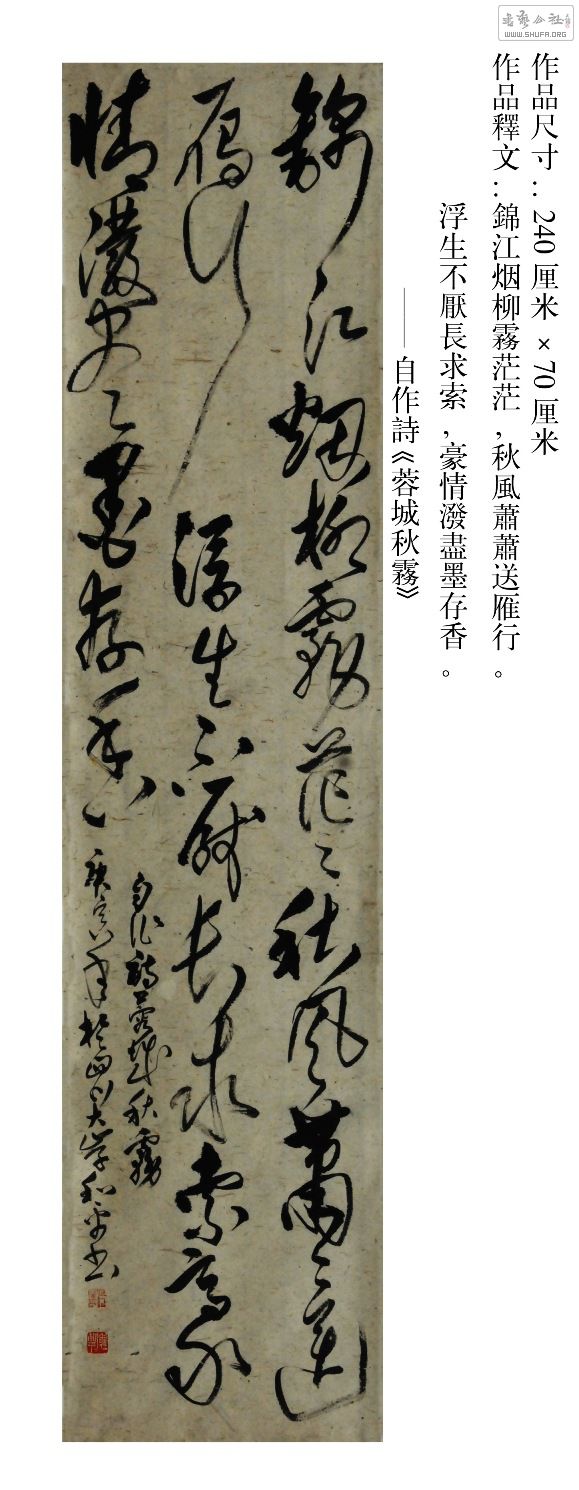 書藝公社
WWW.SHUFA.ORG
作品尺寸：240厘米×70厘米
作品釋文：錦江烟柳霧茫茫，秋風蕭蕭送雁行。
浮生不厭長求索，豪情潑盡墨存香。
——自作詩《蓉城秋霧》
錦江烟柳霧茫〻秋風蕭〻送
雁行浮生不厭長求索豪
情潑盡墨存香
自作詩蓉城秋霧
庚寅年於四川大学和平書